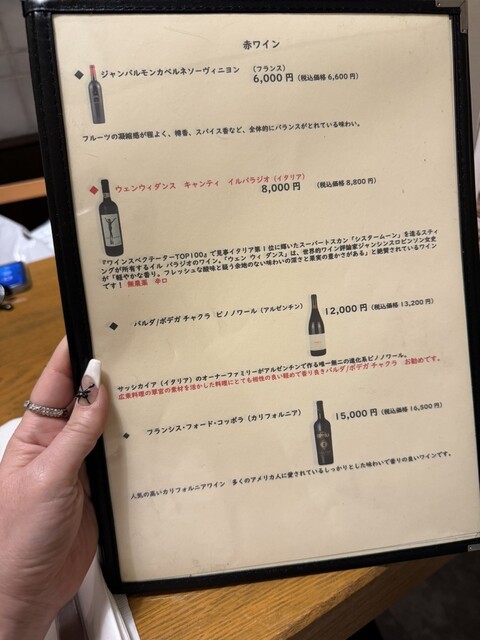 赤ワイン
◆ ジャンバルモンカベルネソーヴィニヨン (フランス)
6,000円 (税込価格 6,600円)
フルーツの凝縮感が程よく、樽香、スパイス香など、全体的にバランスがとれている味わい。
◆ ウェンウィダンス キャンティ イルパラジオ (イタリア)
8,000円 (税込価格 8,800円)
『ワインスペクテーターTOP100』で見事イタリア第1位に輝いたスーパートスカン「システームーン」を造るスティ
ングが所有するイル パラジオのワイン。「ウェン ウィ ダンス」は、世界的ワイン評論家ジャンシンスロビンソン女史
が「軽やかな香り。フレッシュな酸味と疑う余地のない味わいの深さと果実の豊かさがある」と絶賛されているワイン
です! 無農薬 辛口
◆ バルダ/ボデガ チャクラ ピノノワール (アルゼンチン)
12,000円 (税込価格 13,200円)
サッシカイア (イタリア) のオーナーファミリーがアルゼンチンで作る唯一無二の進化系ピノノワール。
広東料理の軍官の素材を活かした料理にとても相性の良い軽めで香り良きバルダ/ボデガ チャクラ お勧めです。
◆ フランシス・フォード・コッポラ (カリフォルニア)
15,000円 (税込価格 16,500円)
人気の高いカリフォルニアワイン 多くのアメリカ人に愛されているしっかりとした味わいで香りの良いワインです。